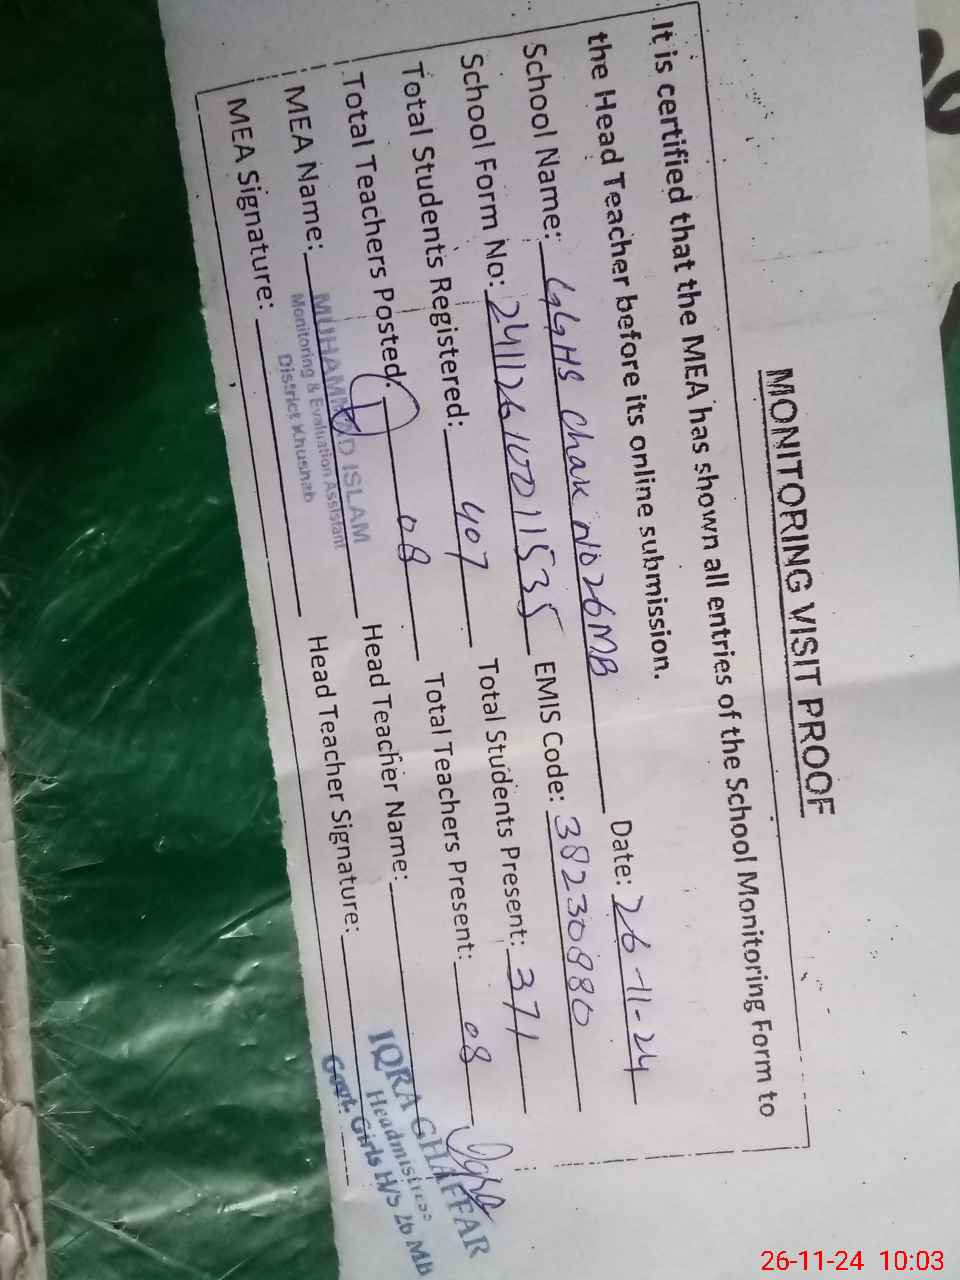 MONITORING VISIT PROOF
It is certified that the MEA has shown all entries of the School Monitoring Form to
the Head Teacher before its online submission.
School Name: GGHS Chak No 26MB Date: 26-11-24
School Form No: 24112610011535 EMIS Code: 38230880
Total Students Registered: 407 Total Students Present: 371
Total Teachers Posted: 08 Total Teachers Present: 08
MEA Name: MUHAMMAD ISLAM Head Teacher Name: IQRA GHAFFAR
Monitoring & Evaluation Assistant Headmistress
District Khushab Govt. Girls H/S 26 MB
MEA Signature: Head Teacher Signature:
26-11-24 10:03